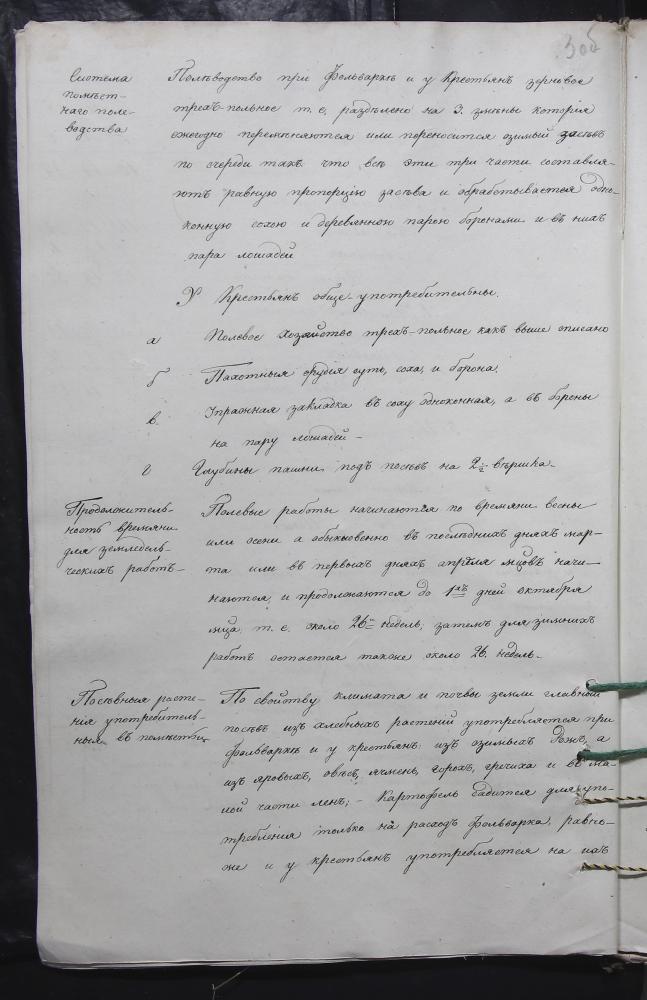 305
Система
помѣст-
наго поле-
водства
Полѣводство при Фольваркѣ и у Крестьянъ зерновое
трехъ-польное т. е. раздѣлено на 3. змѣны которія
ежегодно перемѣняются или переносится озимый засѣвъ
по очереди такъ что всѣ эти три части составля-
ютъ равную пропорцію засѣва и обрабатывается одно-
конную сохою и деревянною парою боронами и въ нихъ
пара лошадей
У Крестьянъ обще-употребительны.
а Полевое Хозяйство трехъ-польное какъ выше описано
б Пахотныя орудія суть, соха, и борона.
в. Упражная закладка въ соху одноконная, а въ бороны
на пару лошадей –
г Глубины пашни подъ посѣвъ на 2½ вѣршка.
Продолжитель-
ность времяни
для земледѣль-
ческихъ работъ –
Полевые работы начинаются по времяни весны
или осени а обыкновенно въ послѣднихъ дняхъ мар-
та или въ первыхъ дняхъ апрѣля мцовъ начи-
наются, и продолжаются до 1хъ дней октября
мца, т. е. около 26 недѣль; затемъ для зимнихъ
работъ остается также около 26. недѣль. –
Посѣвныя расте-
нія употребитель-
ныя въ помѣстьи
По свойству климата и почвы земли главный
посѣвъ изъ хлебныхъ растеній употребляется при
Фольваркѣ и у крестьянъ: изъ озимыхъ Рожъ, а
изъ яровыхъ, овѣсъ, ячмень, горохъ, гречиха и въ ма-
лой части ленъ; – Картофель садится для упо-
требленія только на расходъ Фольварка, равно-
же и у крестьянъ употребляется на ихъ